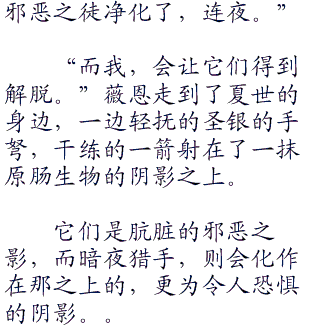 邪恶之徒净化了，连夜。”
“而我，会让它们得到
解脱。”薇恩走到了夏世的
身边，一边轻抚的圣银的手
弩，干练的一箭射在了一抹
原肠生物的阴影之上。
它们是肮脏的邪恶之
影，而暗夜猎手，则会化作
在那之上的，更为令人恐惧
的阴影。。